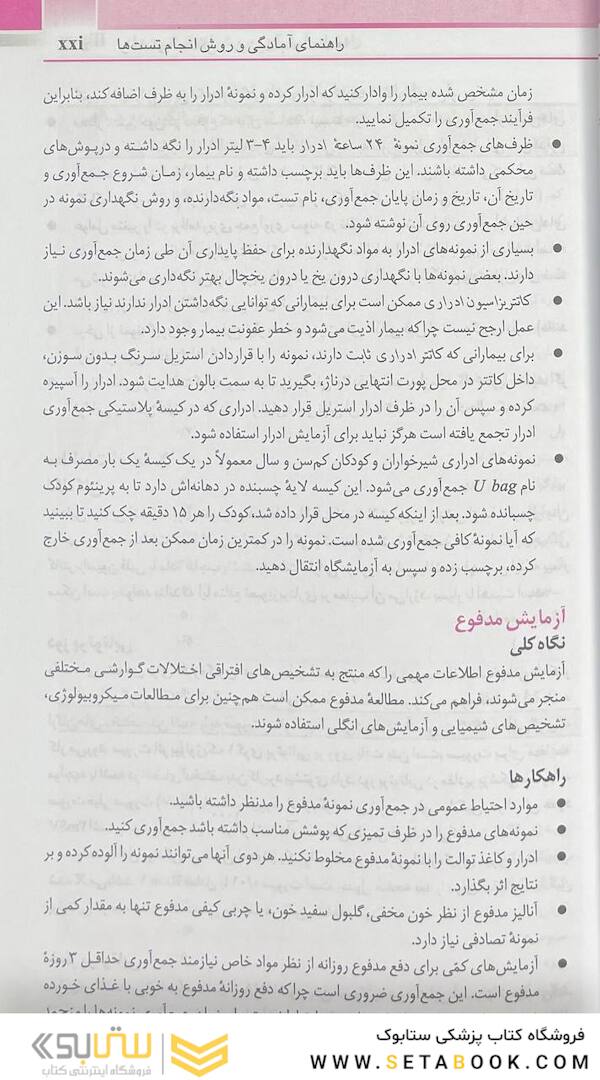 راهنمای آمادگی و روش انجام تست‌ها xxi
زمان مشخص شده بیمار را وادار کنید که ادرار کرده و نمونهٔ ادرار را به ظرف اضافه کند، بنابراین
فرآیند جمع‌آوری را تکمیل نمایید.
● ظرف‌های جمع‌آوری نمونهٔ ۲۴ ساعتهٔ ادرار باید ۴-۳ لیتر ادرار را نگه داشته و درپوش‌های
محکمی داشته باشند. این ظرف‌ها باید برچسب داشته و نام بیمار، زمان شروع جمع‌آوری و
تاریخ آن، تاریخ و زمان پایان جمع‌آوری، نام تست، مواد نگه‌دارنده، و روش نگهداری نمونه در
حین جمع‌آوری روی آن نوشته شود.
● بسیاری از نمونه‌های ادرار به مواد نگهدارنده برای حفظ پایداری آن طی زمان جمع‌آوری نیاز
دارند. بعضی نمونه‌ها با نگهداری درون یخ یا درون یخچال بهتر نگه‌داری می‌شوند.
● کاتتریزاسیون ادراری ممکن است برای بیمارانی که توانایی نگه‌داشتن ادرار ندارند نیاز باشد. این
عمل ارجح نیست چرا که بیمار اذیت می‌شود و خطر عفونت بیمار وجود دارد.
● برای بیمارانی که کاتتر ادراری ثابت دارند، نمونه را با قراردادن استریل سرنگ بدون سوزن،
داخل کاتتر در محل پورت انتهایی درناژ، بگیرید تا به سمت بالون هدایت شود. ادرار را آسپیره
کرده و سپس آن را در ظرف ادرار استریل قرار دهید. ادراری که در کیسهٔ پلاستیکی جمع‌آوری
ادرار تجمع یافته است هرگز نباید برای آزمایش ادرار استفاده شود.
● نمونه‌های ادراری شیرخواران و کودکان کم‌سن و سال معمولاً در یک کیسهٔ یک بار مصرف به
نام U bag جمع‌آوری می‌شود. این کیسه لایهٔ چسبنده در دهانه‌اش دارد تا به پرینئوم کودک
چسبانده شود. بعد از اینکه کیسه در محل قرار داده شد، کودک را هر ۱۵ دقیقه چک کنید تا ببینید
که آیا نمونهٔ کافی جمع‌آوری شده است. نمونه را در کمترین زمان ممکن بعد از جمع‌آوری خارج
کرده، برچسب زده و سپس به آزمایشگاه انتقال دهید.
آزمایش مدفوع
نگاه کلی
آزمایش مدفوع اطلاعات مهمی را که منتج به تشخیص‌های افتراقی اختلالات گوارشی مختلفی
منجر می‌شوند، فراهم می‌کند. مطالعهٔ مدفوع ممکن است هم‌چنین برای مطالعات میکروبیولوژی،
تشخیص‌های شیمیایی و آزمایش‌های انگلی استفاده شوند.
راهکارها
● موارد احتیاط عمومی در جمع‌آوری نمونهٔ مدفوع را مدنظر داشته باشید.
● نمونه‌های مدفوع را در ظرف تمیزی که پوشش مناسب داشته باشد جمع‌آوری کنید.
● ادرار و کاغذ توالت را با نمونهٔ مدفوع مخلوط نکنید. هر دوی آنها می‌توانند نمونه را آلوده کرده و بر
نتایج اثر بگذارد.
● آنالیز مدفوع از نظر خون مخفی، گلبول سفید خون، یا چربی کیفی مدفوع تنها به مقدار کمی از
نمونهٔ تصادفی نیاز دارد.
● آزمایش‌های کمّی برای دفع مدفوع روزانه از نظر مواد خاص نیازمند جمع‌آوری حداقل ۳ روزهٔ
مدفوع است. این جمع‌آوری ضروری است چرا که دفع روزانهٔ مدفوع به خوبی با غذای خورده
فروشگاه کتاب پزشکی ستابوک
WWW.SETABOOK.COM
ستابوک
فروشگاه اینترنتی کتاب